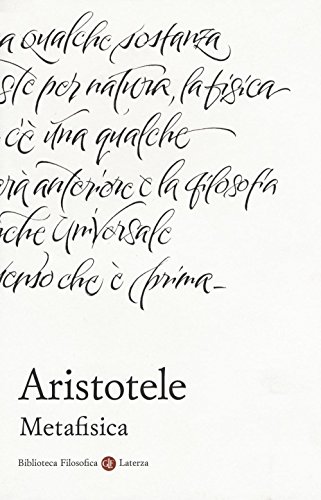 a qualche sostanza
ste per natura, la fisica
c'è una qualche
erà anteriore e la filosofia
nche universale
senso che è prima_
Aristotele
Metafisica
Biblioteca Filosofica GLF Laterza